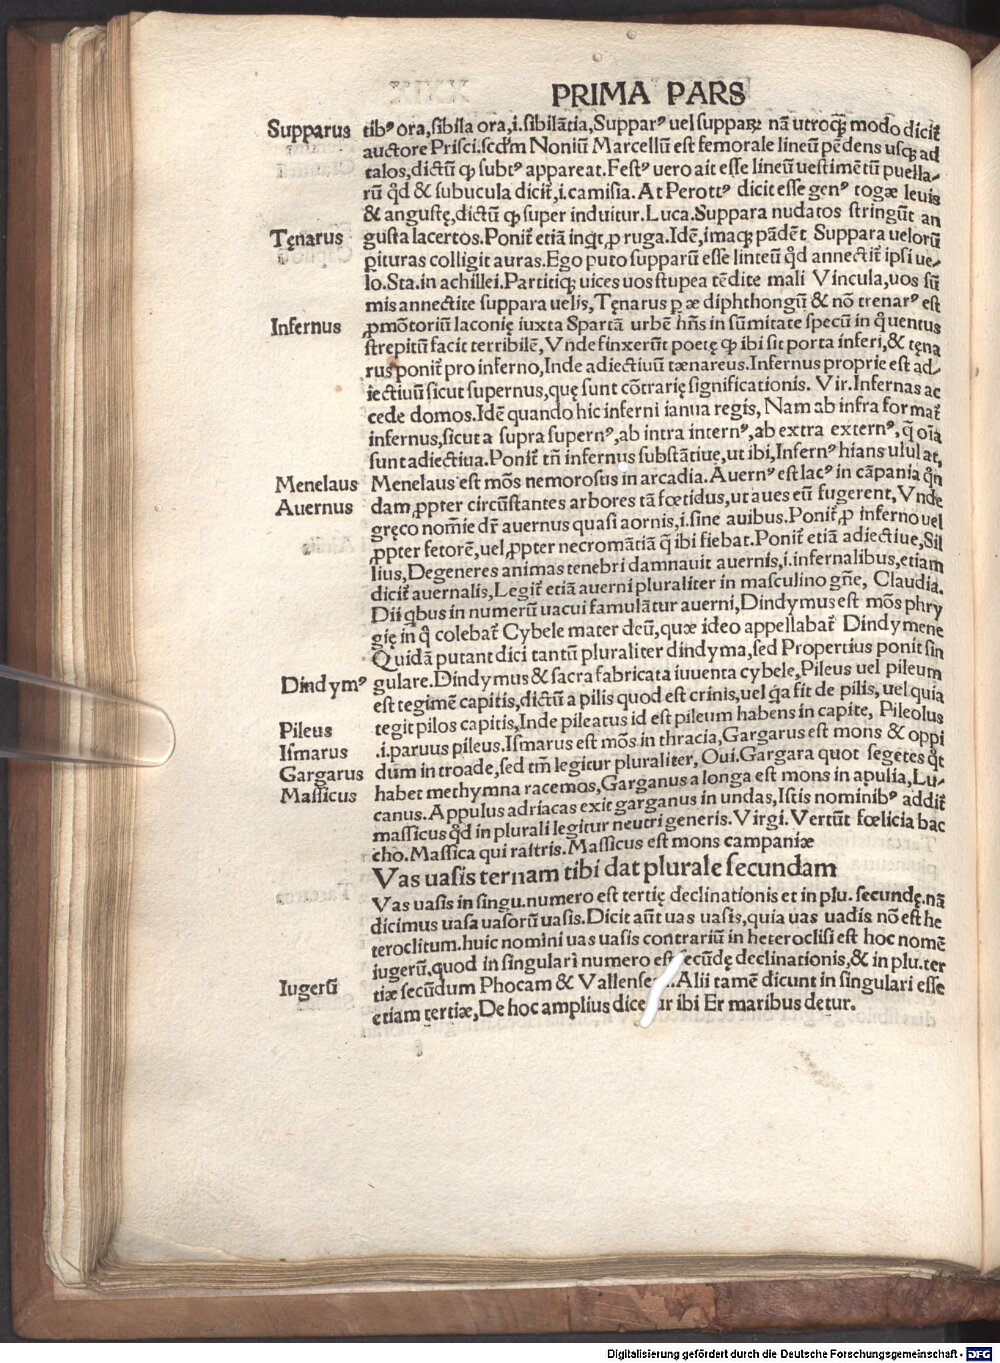 PRIMA PARS
Supparus tibꝰ ora,sibila ora,i.sibilātia,Supparꝰ uel supparꝝ nā utroqꝫ modo dicit̄
auctore Prisci.scd̄m Noniū Marcellū est femorale lineū pēdens usqꝫ ad
talos,dictū ꝙ subtꝰ appareat.Festꝰ uero ait esse lineū uestimētū puella-
rū qd̄ & subucula dicit̄,i.camisia. At Perottꝰ dicit esse genꝰ togæ leuis
& angustę,dictū ꝙ super induitur.Luca.Suppara nudatos stringūt an
Tęnarus gusta lacertos.Ponit̄ etiā inqt,ꝓ ruga.Idē,imaqꝫ pādēt Suppara uelorū
ꝑituras colligit auras.Ego puto supparū esse linteū qd̄ annectit̄ ipsi ue-
lo.Sta.in achillei.Partitiqꝫ uices uos stupea tēdite mali Vincula,uos sū
mis annectite suppara uelis,Tęnarus ꝑ æ diphthongū & nō trenarꝰ est
Infernus ꝓmōtoriū laconię iuxta Spartā urbē hn̄s in sūmitate specū in q̄ uentus
strepitū facit terribilē,Vnde finxerūt poetę ꝙ ibi sit porta inferi,& tęna
rus ponit̄ pro inferno,Inde adiectiuū tænareus.Infernus proprie est ad-
iectiuū sicut supernus,quę sunt cōtrarię significationis. Vir.Infernas ac
cede domos.Idē quando hic inferni ianua regis, Nam ab infra format̄
infernus,sicut a supra supernꝰ,ab intra internꝰ,ab extra externꝰ,q̄ oīa
sunt adiectiua.Ponit̄ tn̄ infernus substātiue,ut ibi,Infernꝰ hians ulul at,
Menelaus Menelaus est mōs nemorosus in arcadia.Auernꝰ est lacꝰ in cāpania qn̄
Auernus dam,ꝓpter circūstantes arbores tā fœtidus,ut aues eū fugerent,Vnde
gręco nom̄ie dr̄ auernus quasi aornis,i.sine auibus.Ponit̄,ꝓ inferno uel
ꝓpter fetorē,uel ꝓpter necromātiā q̄ ibi fiebat.Ponit̄ etiā adiectiue,Sil
lius,Degeneres animas tenebri damnauit auernis,i.infernalibus,etiam
dicit̄ auernalis,Legit̄ etiā auerni pluraliter in masculino gn̄e, Claudia.
Dii qbus in numerū uacui famulātur auerni,Dindymus est mōs phry
gię in q̄ colebat̄ Cybele mater deū,quæ ideo appellabat̄ Dindymene
Quidā putant dici tantū pluraliter dindyma,sed Propertius ponit sin
Dindymꝰ gulare.Dindymus & sacra fabricata iuuenta cybele,Pileus uel pileum
est tegimē capitis,dictū a pilis quod est crinis,uel qa fit de pilis, uel quia
Pileus tegit pilos capitis,Inde pileatus id est pileum habens in capite, Pileolus
Ismarus .i.paruus pileus.Ismarus est mōs in thracia,Gargarus est mons & oppi
Gargarus dum in troade,sed tm̄ legitur pluraliter, Oui.Gargara quot segetes q̄t
Massicus habet methymna racemos,Garganus a longa est mons in apulia,Lu-
canus.Appulus adriacas exit garganus in undas,Istis nominibꝰ addit̄
massicus qd̄ in plurali legitur neutri generis.Virgi.Vertūt fœlicia bac
cho.Massica qui rastris.Massicus est mons campaniæ
Vas uasis ternam tibi dat plurale secundam
Vas uasis in singu.numero est tertię declinationis et in plu. secundę.nā
dicimus uasa uasorū uasis.Dicit aūt uas uasis,quia uas uadis nō est he
teroclitum.huic nomini uas uasis contrariū in heteroclisi est hoc nomē
iugerū.quod in singulari numero est secūdę declinationis,& in plu.ter
Iugerū tiæ secūdum Phocam & Vallense.Alii tamē dicunt in singulari esse
etiam tertiæ,De hoc amplius dicetur ibi Er maribus detur.
Digitalisierung gefördert durch die Deutsche Forschungsgemeinschaft - DFG